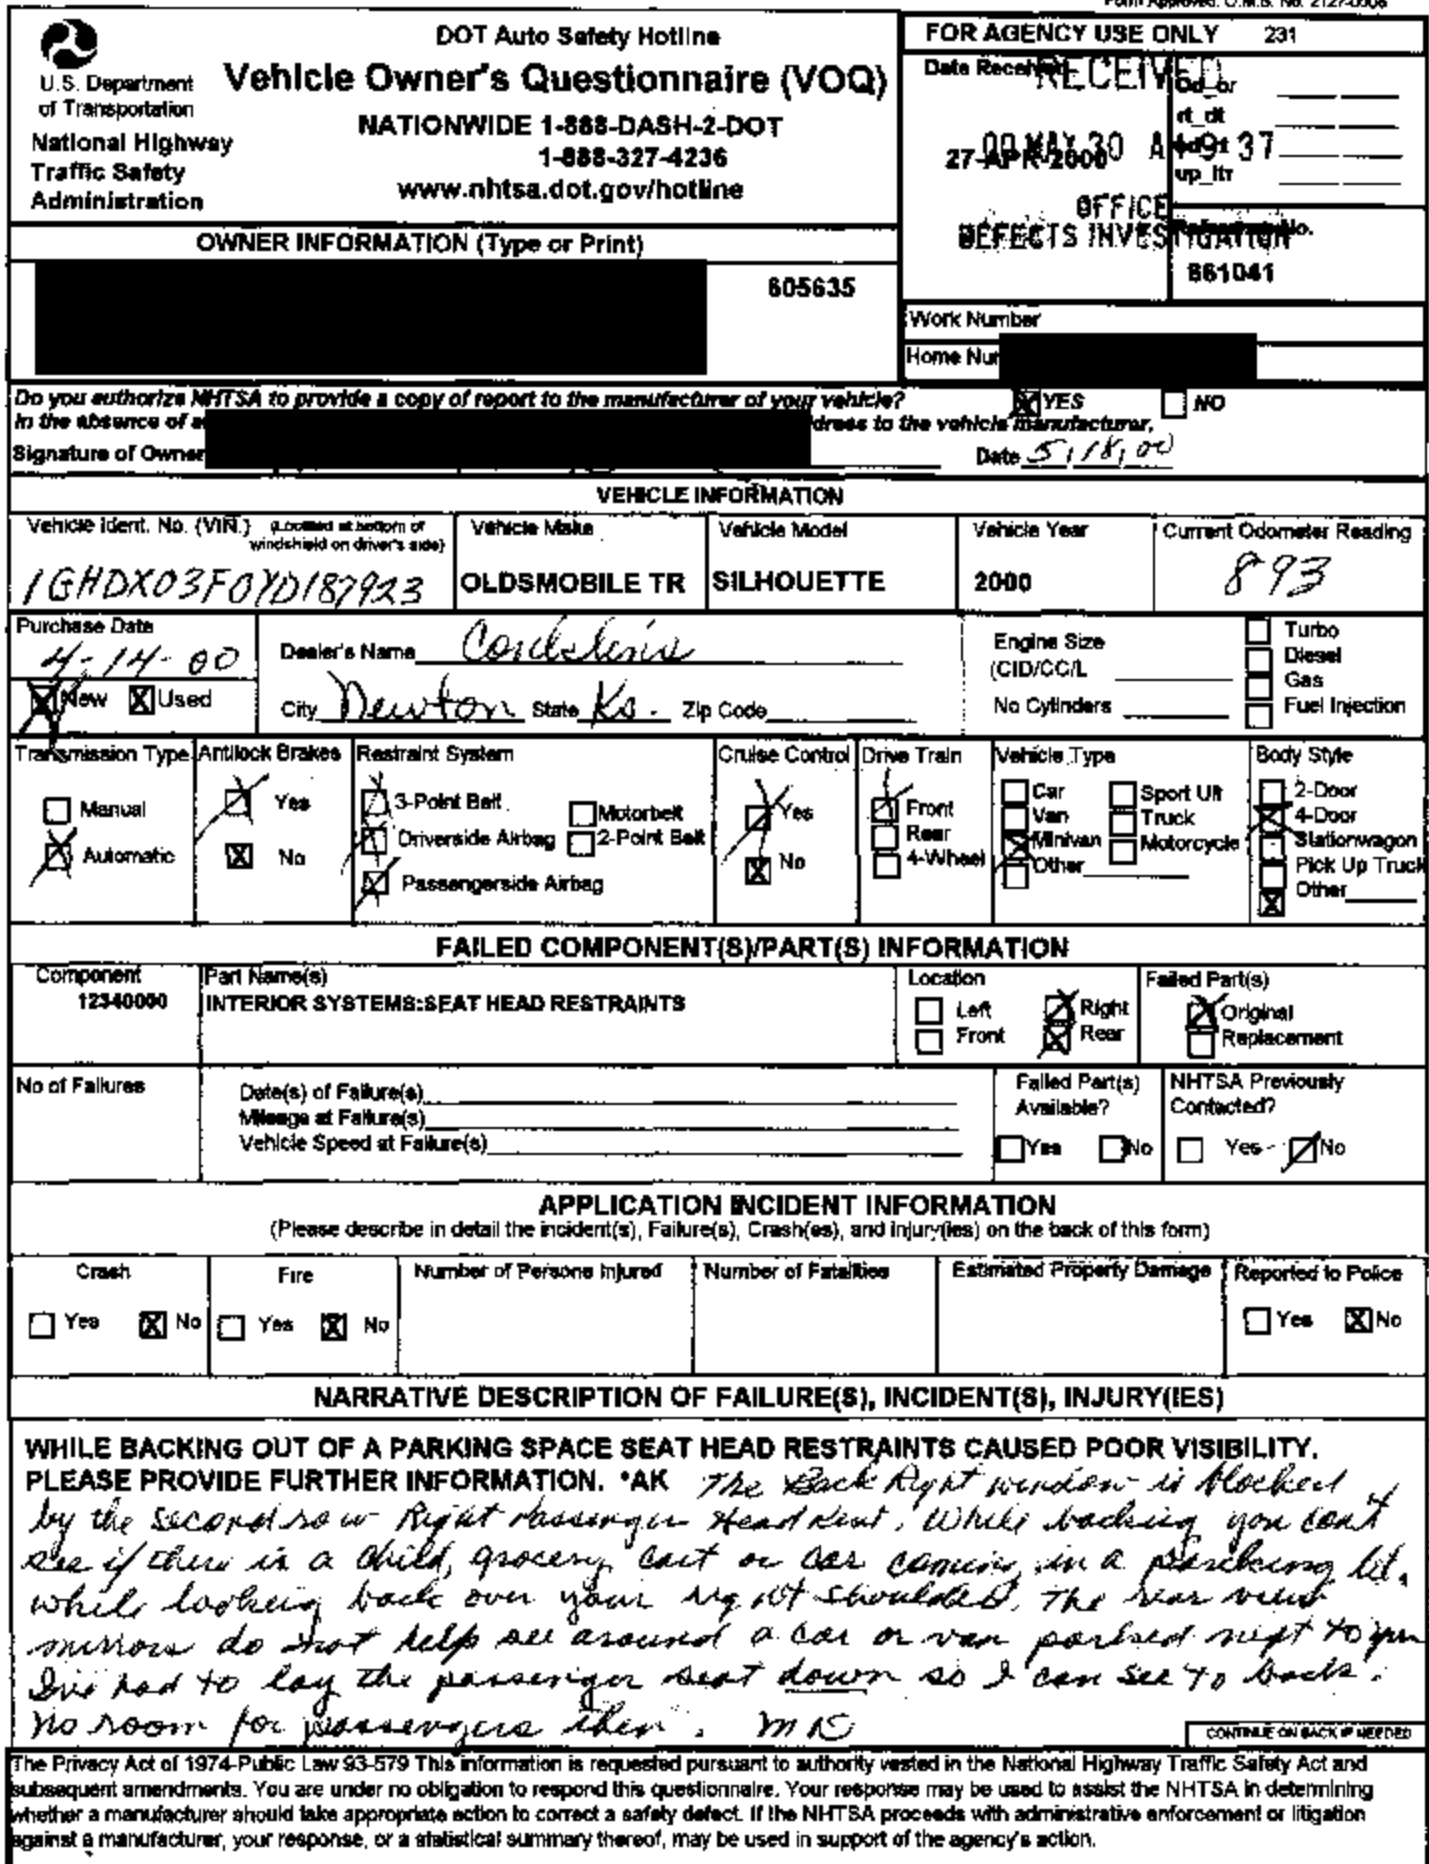 Form Approved: O.M.B. No. 2127-0008
U.S. Department
of Transportation
National Highway
Traffic Safety
Administration
DOT Auto Safety Hotline
Vehicle Owner's Questionnaire (VOQ)
NATIONWIDE 1-888-DASH-2-DOT
1-888-327-4236
www.nhtsa.dot.gov/hotline
FOR AGENCY USE ONLY 231
Date Received
RECEIVED
od_or
rt_dt
up_ltr
27-APR-2000
00 MAY 30 A 9: 37
OFFICE
DEFECTS INVESTIGATION
Reference No.
861041
OWNER INFORMATION (Type or Print)
605635
Work Number
Home Num
Do you authorize NHTSA to provide a copy of report to the manufacturer of your vehicle? X YES NO
In the absence of a dress to the vehicle manufacturer.
Signature of Owner Date 5/18/00
VEHICLE INFORMATION
Vehicle Ident. No. (VIN.) (Located at bottom of windshield on driver's side)
1GHDX03F0YD187923
Vehicle Make
OLDSMOBILE TR
Vehicle Model
SILHOUETTE
Vehicle Year
2000
Current Odometer Reading
893
Purchase Date
4-14-00
X New X Used
Dealer's Name
City Newton State Ks. Zip Code
Engine Size
(CID/CC/L
No Cylinders
Turbo
Diesel
Gas
Fuel Injection
Transmission Type
Manual
Automatic
Antilock Brakes
Yes
X No
Restraint System
3-Point Belt
Driverside Airbag
Passengerside Airbag
Motorbelt
2-Point Belt
Cruise Control
Yes
X No
Drive Train
Front
Rear
4-Wheel
Vehicle Type
Car
Van
Minivan
Other
Sport Utl
Truck
Motorcycle
Body Style
2-Door
4-Door
Stationwagon
Pick Up Truck
X Other
FAILED COMPONENT(S)/PART(S) INFORMATION
Component
12340000
Part Name(s)
INTERIOR SYSTEMS:SEAT HEAD RESTRAINTS
Location
Left Right
Front Rear
Failed Part(s)
Original
Replacement
No of Failures
Date(s) of Failure(s)
Mileage at Failure(s)
Vehicle Speed at Failure(s)
Failed Part(s)
Available?
Yes No
NHTSA Previously
Contacted?
Yes No
APPLICATION INCIDENT INFORMATION
(Please describe in detail the incident(s), Failure(s), Crash(es), and injury(ies) on the back of this form)
Crash
Yes X No
Fire
Yes X No
Number of Persons Injured
Number of Fatalities
Estimated Property Damage
Reported to Police
Yes X No
NARRATIVE DESCRIPTION OF FAILURE(S), INCIDENT(S), INJURY(IES)
WHILE BACKING OUT OF A PARKING SPACE SEAT HEAD RESTRAINTS CAUSED POOR VISIBILITY.
PLEASE PROVIDE FURTHER INFORMATION. *AK The Back Right window is blocked
by the second row Right Passenger Head Rest. While backing you can't
see if there is a child, grocery cart or car coming in a parking lot,
while looking back over your right shoulder. The rear view
mirrors do not help see around a car or van parked next to you
I've had to lay the passenger seat down so I can see to back.
No room for passengers then.
CONTINUE ON BACK IF NEEDED
The Privacy Act of 1974-Public Law 93-579 This information is requested pursuant to authority vested in the National Highway Traffic Safety Act and
subsequent amendments. You are under no obligation to respond this questionnaire. Your response may be used to assist the NHTSA in determining
whether a manufacturer should take appropriate action to correct a safety defect. If the NHTSA proceeds with administrative enforcement or litigation
against a manufacturer, your response, or a statistical summary thereof, may be used in support of the agency's action.